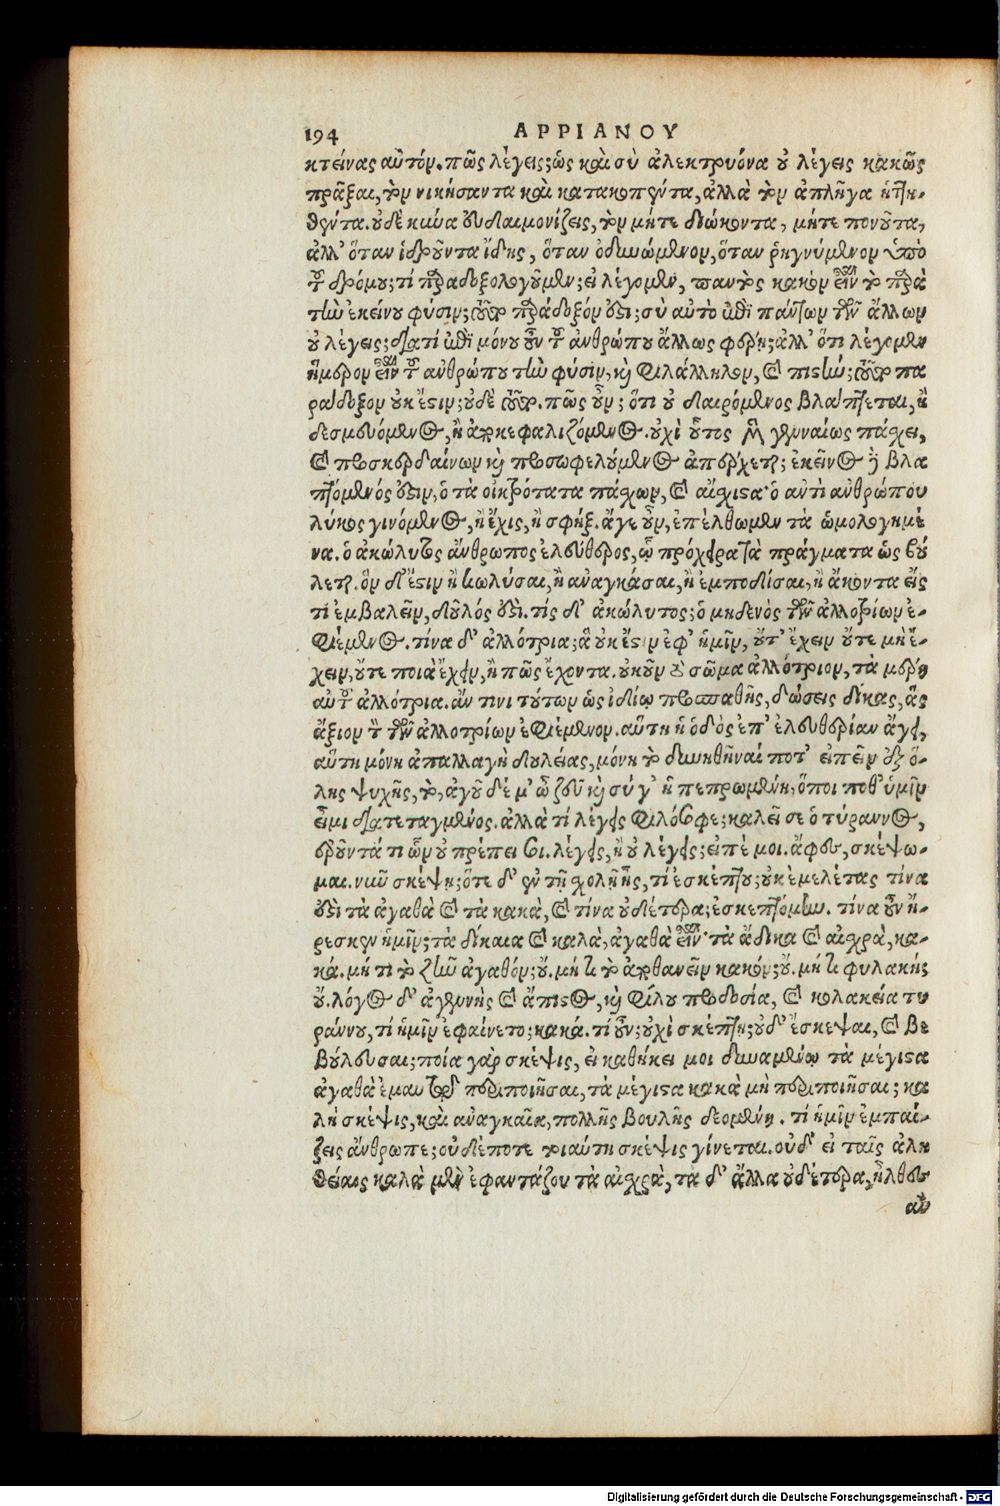 194 ΑΡΡΙΑΝΟΥ
κτείνας αὐτόν. πῶς λέγεις; ὡς καὶ σὺ ἀλεκτρυόνα οὐ λέγεις κακῶς
πρᾶξαι, τὸν νικήσαντα καὶ κατακοπέντα, ἀλλὰ τὸν ἀπλῆγα ἡττη-
θέντα. οὐδὲ κύνα εὐδαιμονίζεις, τὸν μήτε διώκοντα, μήτε πονοῦντα,
ἀλλ' ὅταν ἱδροῦντα ἴδῃς, ὅταν ὀδυνώμενον, ὅταν ῥηγνύμενον ὑπὸ
τοῦ δρόμου; τί παραδοξολογοῦμεν; εἰ λέγομεν, παντὸς κακὸν εἶναι τὸ παρὰ
τὴν ἐκείνου φύσιν; τοῦτο παράδοξόν ἐστι; σὺ αὐτὸ ἐπὶ πάντων τῶν ἄλλων
οὐ λέγεις; διατί ἐπὶ μόνου οὖν τοῦ ἀνθρώπου ἄλλως φέρῃ; ἀλλ' ὅτι λέγομεν
ἥμερον εἶναι τοῦ ἀνθρώπου τὴν φύσιν, καὶ φιλάλληλον, καὶ πιστήν; τοῦτο πα
ράδοξον οὐκ ἔστιν; οὐδὲ τοῦτο. πῶς οὖν; ὅτι οὐ δαιρόμενος βλάπτεται, ἢ
δεσμευόμενος, ἢ ἀποκεφαλιζόμενος. οὐχὶ οὕτως μὲν γενναίως πάσχει,
καὶ προσκερδαίνων καὶ προσωφελούμενος ἀπέρχεται; ἐκεῖνος δὲ βλα
πτόμενός ἐστιν, ὁ τὰ οἰκτρότατα πάσχων, καὶ αἴσχιστα· ὁ αὐτὶ ἀνθρώπου
λύκος γινόμενος, ἢ ἔχις, ἢ σφήξ. ἄγε οὖν, ἐπέλθωμεν τὰ ὡμολογημέ
να. ὁ ἀκώλυτος ἄνθρωπος ἐλεύθερος, ᾧ πρόχειρα τὰ πράγματα ὡς βού
λεται. ὃν δ' ἔστιν ἢ κωλύσαι, ἢ ἀναγκάσαι, ἢ ἐμποδίσαι, ἢ ἄκοντα εἴς
τι ἐμβαλεῖν, δοῦλός ἐστι. τίς δ' ἀκώλυτος; ὁ μηδενὸς τῶν ἀλλοτρίων ἐ-
φιέμενος. τίνα δ' ἀλλότρια; ἃ οὐκ ἔστιν ἐφ' ἡμῖν, οὔτ' ἔχειν οὔτε μὴ ἔ-
χειν, οὔτε ποιὰ ἔχειν, ἢ πῶς ἔχοντα. οὐκοῦν τὸ σῶμα ἀλλότριον, τὰ μέρη
αὐτοῦ ἀλλότρια. ἄν τινι τούτων ὡς ἰδίῳ προσπαθῇς, δώσεις δίκας, ἃς
ἄξιον τὸν τῶν ἀλλοτρίων ἐφιέμενον. αὕτη ἡ ὁδὸς ἐπ' ἐλευθερίαν ἄγει,
αὕτη μόνη ἀπαλλαγὴ δουλείας, μόνη τὸ δυνηθῆναί ποτ' εἰπεῖν ἐξ ὅ-
λης ψυχῆς, τὸ, ἀγοῦ δέ μ' ὦ ζεῦ καὶ σύ γ' ἡ πεπρωμένη, ὅποι ποθ' ὑμῖν
εἶμι διατεταγμένος. ἀλλὰ τί λέγεις φιλόσοφε; καλεῖ σε ὁ τύραννος,
ἐροῦντά τι ὧν οὐ πρέπει σοι. λέγεις, ἢ οὐ λέγεις; εἰπέ μοι. ἄφες, σκέψω-
μαι. νῦν σκέψῃ; ὅτε δ' ἐν τῇ σχολῇ ἦς, τί ἐσκέπτου; οὐκ ἐμελέτας τίνα
ἐστὶ τὰ ἀγαθὰ καὶ τὰ κακὰ, καὶ τίνα οὐδέτερα; ἐσκεπτόμην. τίνα οὖν ἤ-
ρεσκεν ἡμῖν; τὰ δίκαια καὶ καλὰ, ἀγαθὰ εἶναι· τὰ ἄδικα καὶ αἰσχρὰ, κα-
κά. μή τι τὸ ζῆν ἀγαθόν; οὔ. μή τι τὸ ἀποθανεῖν κακόν; οὔ. μή τι φυλακή;
οὔ. λόγος δ' ἀγεννὴς καὶ ἄπιστος, καὶ φίλου προδοσία, καὶ κολακεία τυ
ράννου, τί ἡμῖν ἐφαίνετο; κακά. τί οὖν; οὐχὶ σκέπτῃ; οὐδ' ἔσκεψαι, καὶ βε
βούλευσαι; ποία γὰρ σκέψις, εἰ καθήκει μοι δυναμένῳ τὰ μέγιστα
ἀγαθὰ ἐμαυτῷ περιποιῆσαι, τὰ μέγιστα κακὰ μὴ περιποιῆσαι; κα
λὴ σκέψις, καὶ ἀναγκαία, πολλῆς βουλῆς δεομένη. τί ἡμῖν ἐμπαί-
ζεις ἄνθρωπε; οὐδέποτε τοιαύτη σκέψις γίνεται. οὐδ' εἰ ταῖς ἀλη
θείαις καλὰ μὲν ἐφαντάζου τὰ αἰσχρὰ, τὰ δ' ἄλλα οὐδέτερα, ἦλθες
αὖ
Digitalisierung gefördert durch die Deutsche Forschungsgemeinschaft - DFG